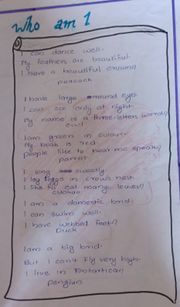 Who am I
I can dance well.
My feathers are beautiful
I have a beautiful crown/
peacock
I have large round eyes
I can see only at night.
My name is a three-letter word/
owl
I am green in colour
My beak is red
people like to hear me speak/
parrot
I sing sweetly.
I lay eggs in crow's nest
I eat many
cuckoo
I am a domestic bird
I can swim well.
I have webbed feet/
Duck
I am a big bird.
But I can't fly very high.
I live in
penguin